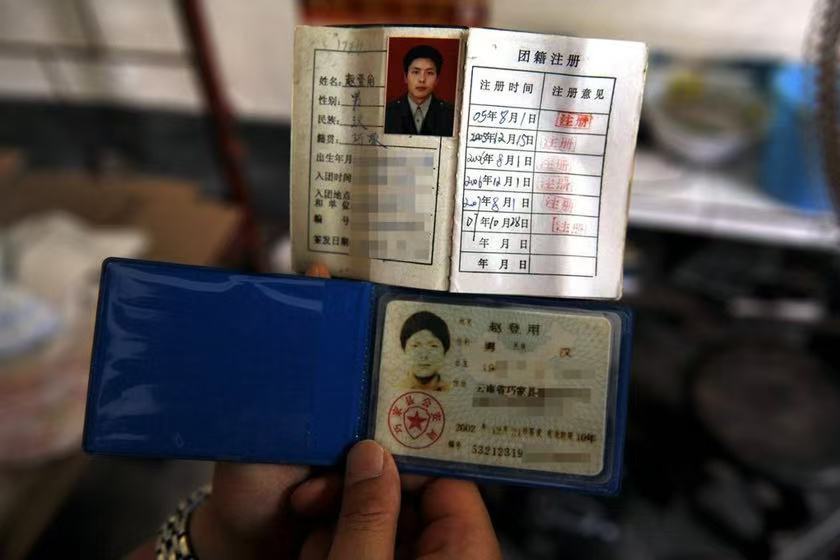 姓名：赵登用
性别：男
民族：汉
籍贯：巧家
出生年月
入团时间
入团地点
和单位
编 号
签发日期
团籍注册
注册时间 注册意见
05年8月1日 注册
2005年12月15日 注册
2006年8月1日 注册
2006年12月1日 注册
2007年8月1日 注册
07年10月28日 注册
年 月 日
年 月 日
姓名 赵登用
性别 男 民族 汉
出生 19
住址 云南省巧家县
巧家县公安局
2002年12月31日签发 有效期限10年
编号 53212319